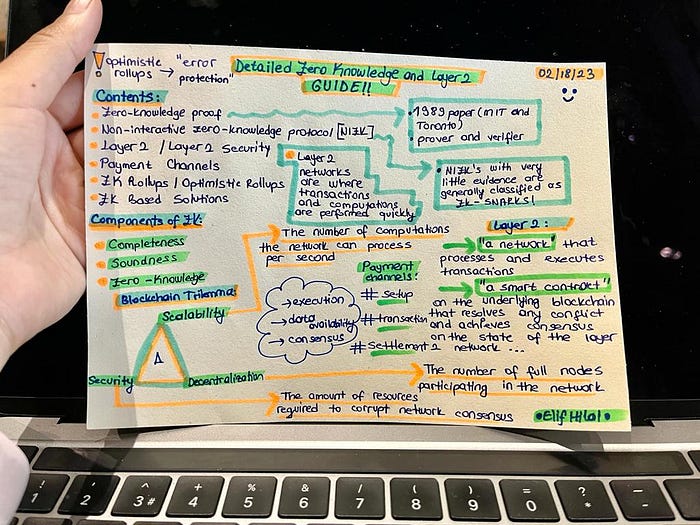 ! Optimistic rollups → "error protection"
Detailed Zero Knowledge and Layer 2
GUIDE!!
02/18/23
Contents:
• Zero-knowledge proof
• Non-interactive zero-knowledge protocol [NIZK]
• Layer 2 / Layer 2 Security
• Payment Channels
• ZK Rollups / Optimistic Rollups
• ZK Based Solutions
• 1989 paper (MIT and
Toronto)
• prover and verifier
• Layer 2
networks
are where
transactions
and computations
are performed quickly
• NIZK's with very
little evidence are
generally classified as
ZK-SNARKS!
Components of ZK:
• Completeness
• Soundness
• Zero-Knowledge
Blockchain Trilemma:
Scalability
Security
Decentralization
The number of computations
the network can process
per second
→ execution
→ data availability
→ consensus
Payment
channels:
# setup
# transaction
# settlement
Layer 2:
"a network" that
processes and executes
transactions
"a smart contract"
on the underlying blockchain
that resolves any conflict
and achieves consensus
on the state of the layer
2 network ...
The number of full nodes
participating in the network
The amount of resources
required to corrupt network consensus
• Elif Hilal •
! 1
" 2
^ 3 #
+ 4
% 5
& 6
/ 7
( 8
) 9
= 0
? *
_ -